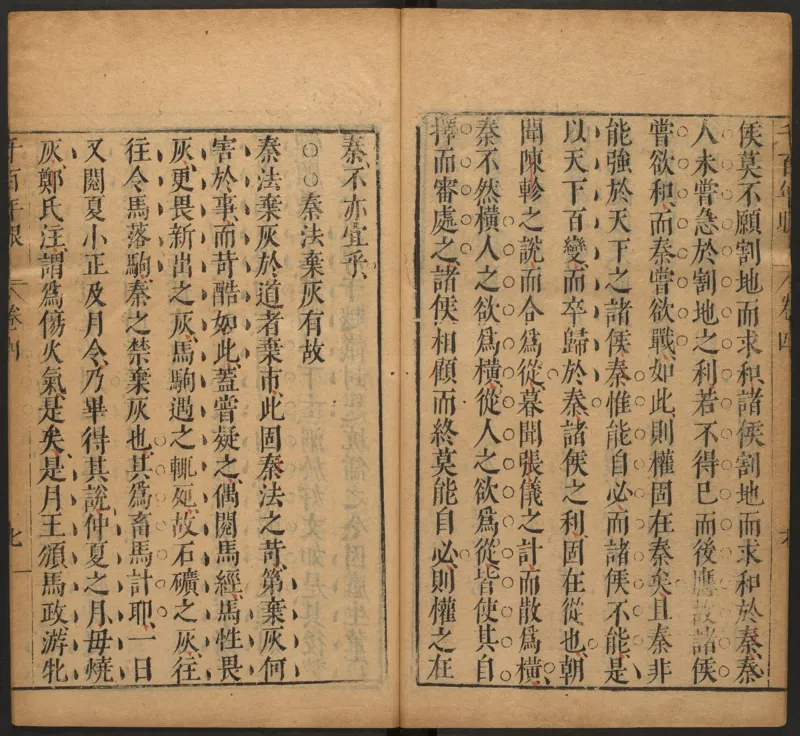 侯莫不願割地而求和諸侯割地而求和於秦秦
人未嘗急於割地之利若不得已而後應故諸侯
嘗欲和而秦嘗欲戰如此則權固在秦矣且秦非
能強於天下之諸侯秦惟能自必而諸侯不能是
以天下百變而卒歸於秦諸侯之利固在從也朝
聞陳軫之說而合爲從暮聞張儀之計而散爲橫
秦不然橫人之欲爲橫從人之欲爲從皆使其自
擇而審處之諸侯相顧而終莫能自必則權之在
秦不亦宜乎
○○秦法棄灰有故
秦法棄灰於道者棄市此固秦法之苛第棄灰何
害於事而苛酷如此蓋嘗疑之偶閱馬經馬性畏
灰更畏新出之灰馬駒遇之輒死故石礦之灰往
往令馬落駒秦之禁棄灰也其爲畜馬計耶一日
又閱夏小正及月令乃畢得其說仲夏之月毋燒
灰鄭氏注謂爲傷火氣是矣是月王頒馬政游牝
千百年眼
卷四
七